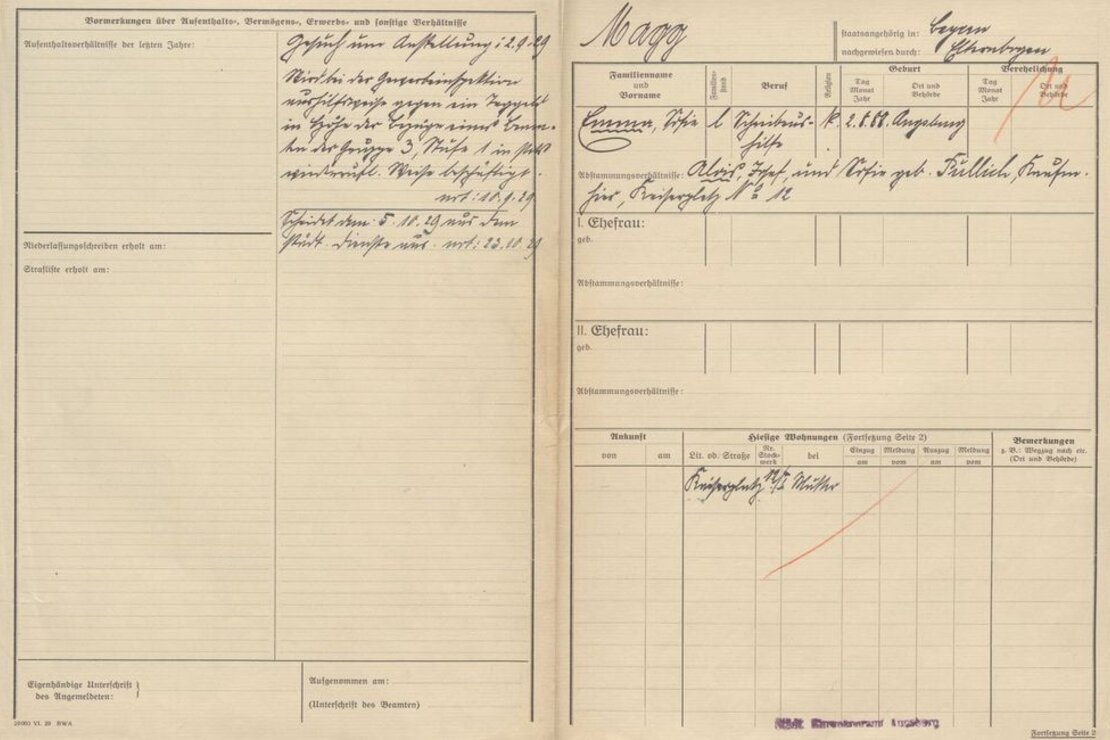 Vormerkungen über Aufenthalts-, Vermögens-, Erwerbs- und sonstige Verhältnisse
Aufenthaltsverhältnisse der letzten Jahre:
Gesuch um Anstellung: 2.9.29
Wird bei der Gewerbeinspektion
aushilfsweise gegen ein Taggeld
in Höhe der Bezüge eines Beam-
ten der Gruppe 3, Stufe 1 in stets
widerrufl. Weise beschäftigt.
10.9.29
Scheidet dem 5.10.29 aus dem
städt. Dienste aus. 23.10.29
Niederlassungschreiben erholt am:
Strafliste erholt am:
Eigenhändige Unterschrift
des Angemeldeten:
Aufgenommen am:
(Unterschrift des Beamten)
20000 VI. 29 BWA
Magg
Staatsangehörig in: Bayern
nachgewiesen durch: Elternbogen
Familienname und Vorname
Familien-stand
Beruf
Religion
Geburt
Tag Monat Jahr
Ort und Behörde
Verehelichung
Tag Monat Jahr
Ort und Behörde
Emma, Sofie l Schreibaus-
hilfe
k. Augsburg
Abstammungsverhältnisse: Alois, Josef, und Sofie geb. Kaufm.
hier, Kaiserplatz No 12
I. Ehefrau:
geb.
Abstammungsverhältnisse:
II. Ehefrau:
geb.
Abstammungsverhältnisse:
Ankunft
von am
Hiesige Wohnungen (Fortsetzung Seite 2)
Lit. od. Straße
Nr. Stock-werk
bei
Einzug am
Meldung vom
Auszug am
Meldung vom
Bemerkungen
z. B.: Wegzug nach etc.
(Ort und Behörde)
Kaiserplatz 12/I Mutter
Augsburg
Fortsetzung Seite 2